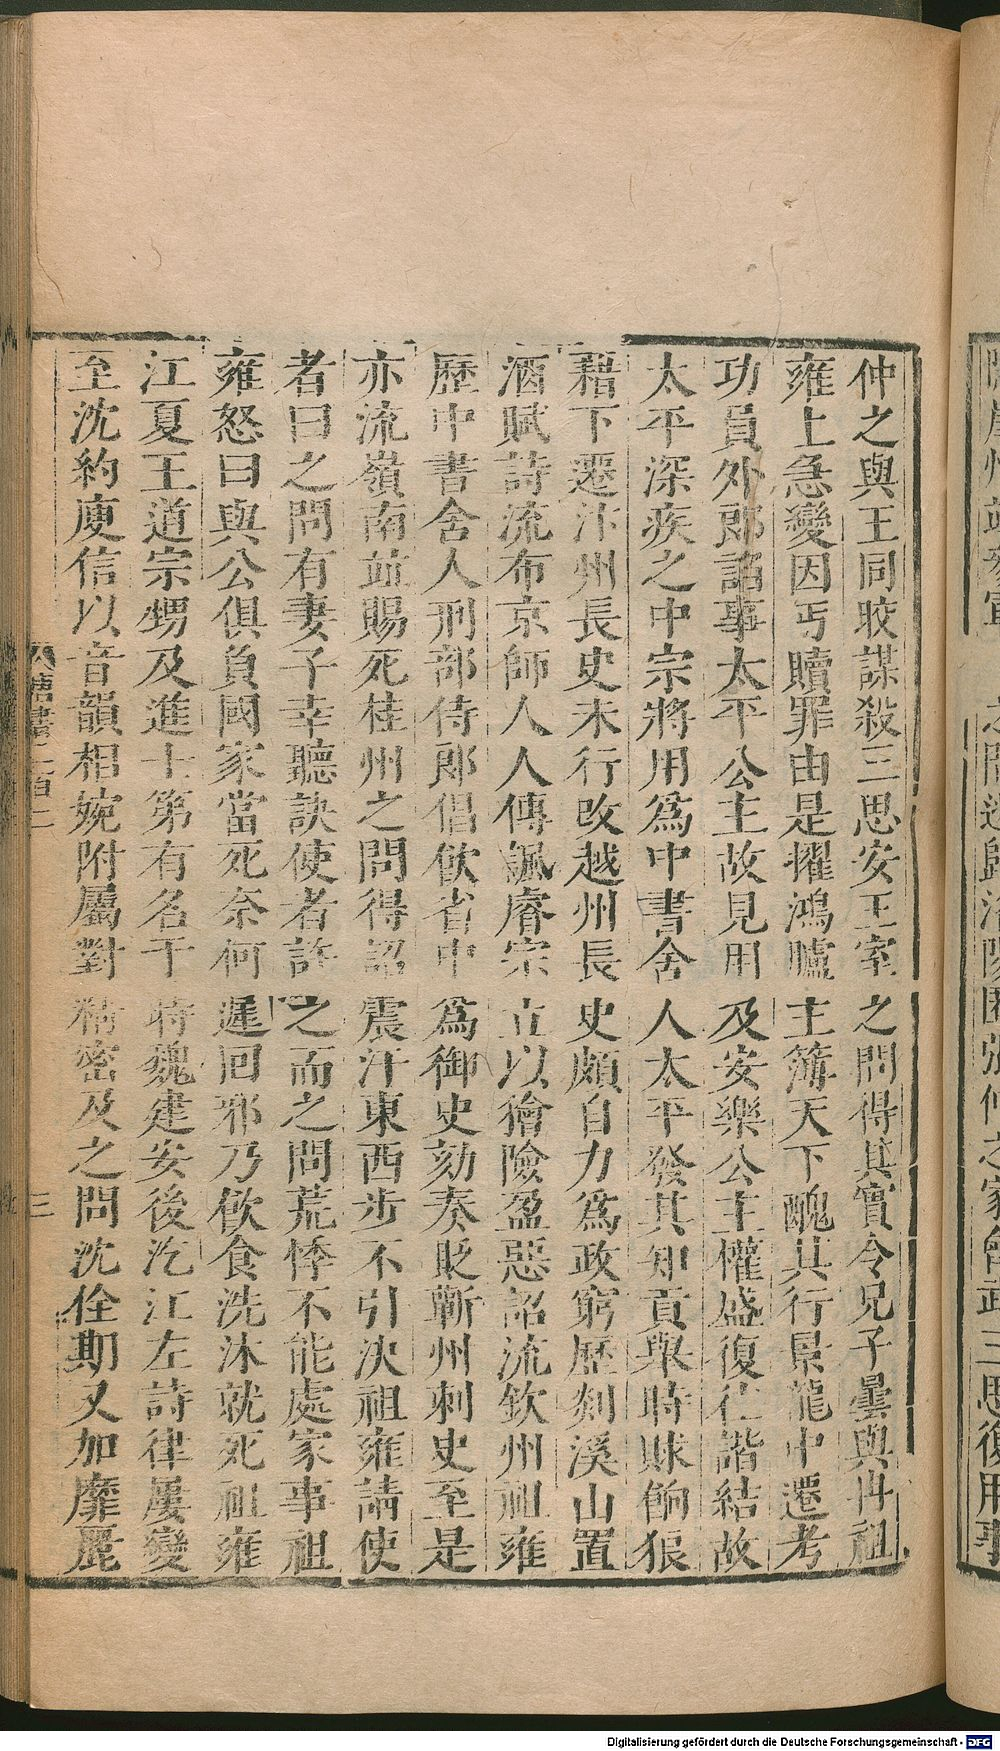 之問逃歸洛陽匿張仲之家會武三思復用事
仲之與王同皎謀殺三思安王室之問得其實令兄子曇與冉祖
雍上急變因丐贖罪由是擢鴻臚主簿天下醜其行景龍中遷考
功員外郎諂事太平公主故見用及安樂公主權盛復往諧結故
太平深疾之中宗將用爲中書舍人太平發其知貢舉時賕餉狼
藉下遷汴州長史未行改越州長史頗自力爲政窮歷剡溪山置
酒賦詩流布京師人人傳諷睿宗立以獪險盈惡詔流欽州祖雍
歷中書舍人刑部侍郎倡飲省中爲御史劾奏貶蘄州刺史至是
亦流嶺南並賜死桂州之問得詔震汗東西步不引決祖雍請使
者曰之問有妻子幸聽訣使者許之而之問荒悸不能處家事祖
雍怒曰與公俱負國家當死奈何遲回邪乃飲食洗沐就死祖雍
江夏王道宗甥及進士第有名于時魏建安後汔江左詩律屢變
至沈約庾信以音韻相婉附屬對精密及之問沈佺期又加靡麗
唐書二百二 三
Digitalisierung gefördert durch die Deutsche Forschungsgemeinschaft - DFG